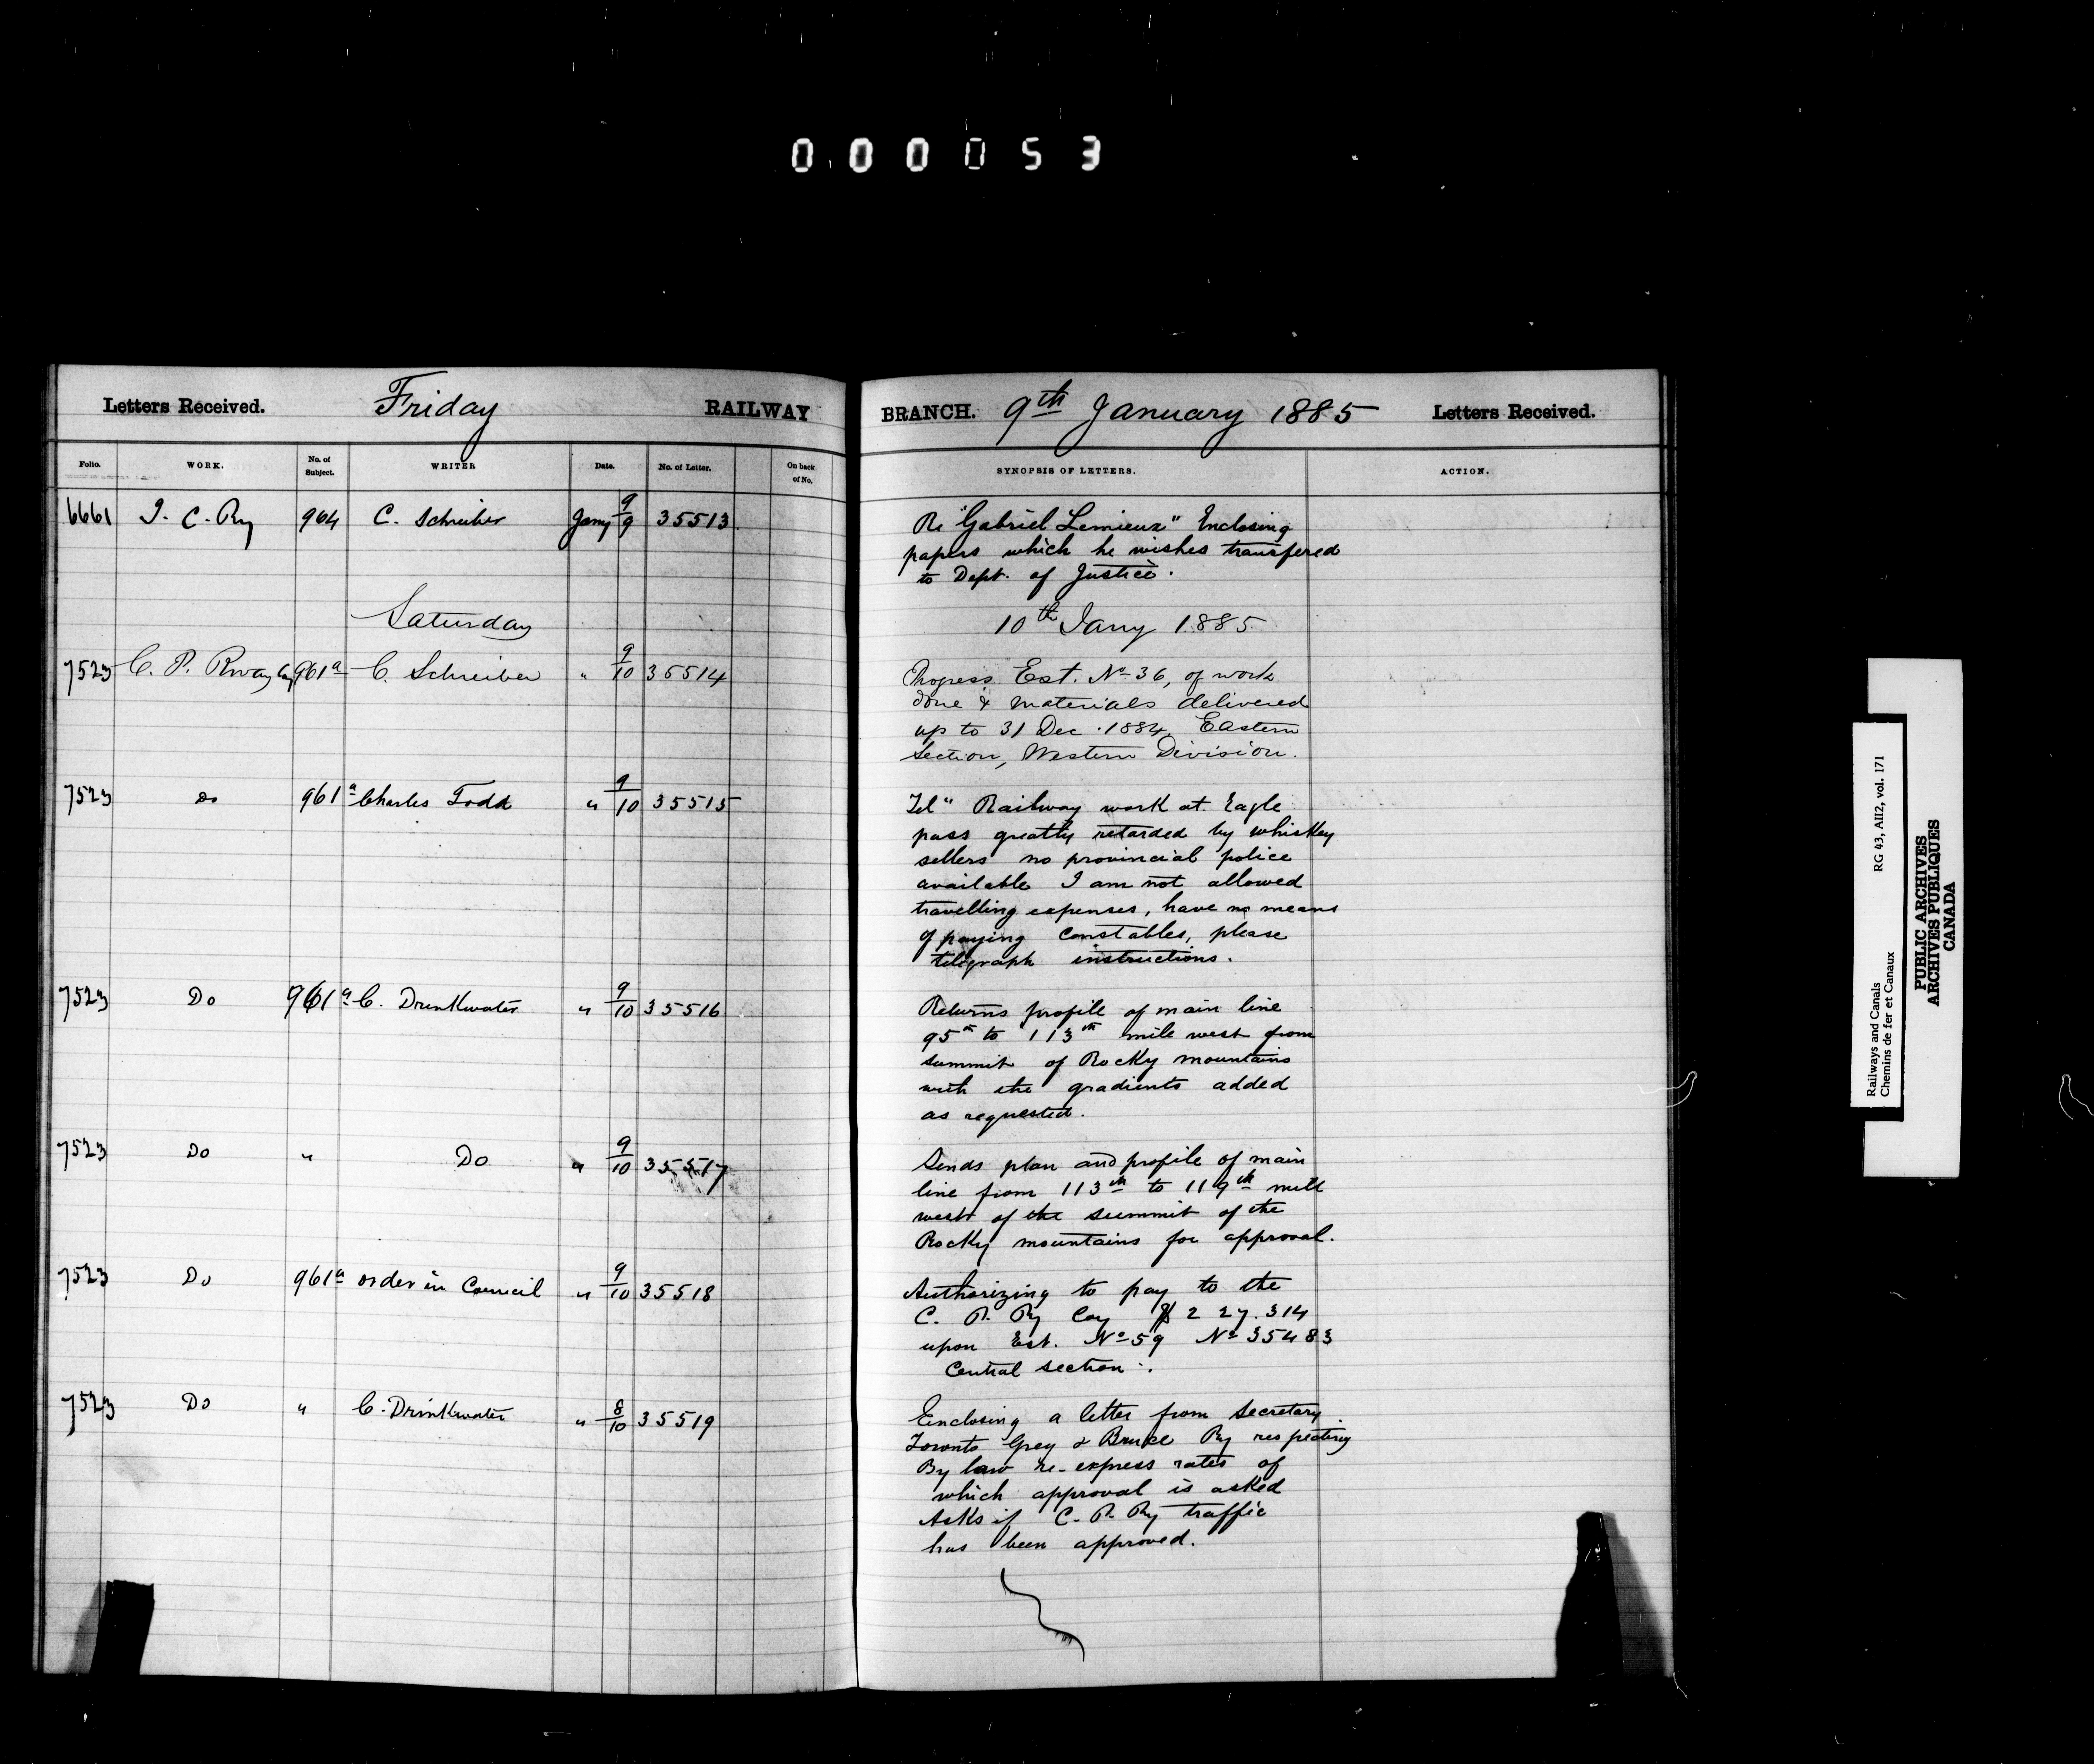 000053
Letters Received. Friday RAILWAY BRANCH. 9th January 1885 Letters Received.
Folio. WORK. No. of Subject. WRITER Date. No. of Letter. On back of No. SYNOPSIS OF LETTERS. ACTION.
6661 I. C. Ry 964 C. Schreiber Jany 9/9 35513
Re "Gabriel Lemieux" Enclosing
papers which he wishes transfered
to Dept. of Justice.
Saturday 10th Jany 1885
7523 C. P. Rway Coy 961a C. Schreiber " 9/10 35514
Progress Est. No 36, of work
done & materials delivered
up to 31 Dec. 1884. Eastern
Section, Western Division.
7523 Do 961a Charles Todd " 9/10 35515
Tel" Railway work at Eagle
pass greatly retarded by whiskey
sellers no provincial police
available I am not allowed
travelling expenses, have no means
of paying constables, please
telegraph instructions.
7523 Do 961a C. Drinkwater " 9/10 35516
Returns profile of main line
95th to 113th mile west from
summit of Rocky mountains
with the gradients added
as requested.
7523 Do " Do " 9/10 35517
Sends plan and profile of main
line from 113th to 119th mile
west of the summit of the
Rocky mountains for approval.
7523 Do 961a order in Council " 9/10 35518
Authorizing to pay to the
C. P. Ry Coy $227.314
upon Est. No 59 No 35483
Central section.
7523 Do " C. Drinkwater " 8/10 35519
Enclosing a letter from Secretary
Toronto Grey & Bruce Ry respecting
By law re-express rates of
which approval is asked
Asks if C. P. Ry traffic
has been approved.
Railways and Canals RG 43, AII2, vol. 171
Chemins de fer et Canaux
PUBLIC ARCHIVES
ARCHIVES PUBLIQUES
CANADA